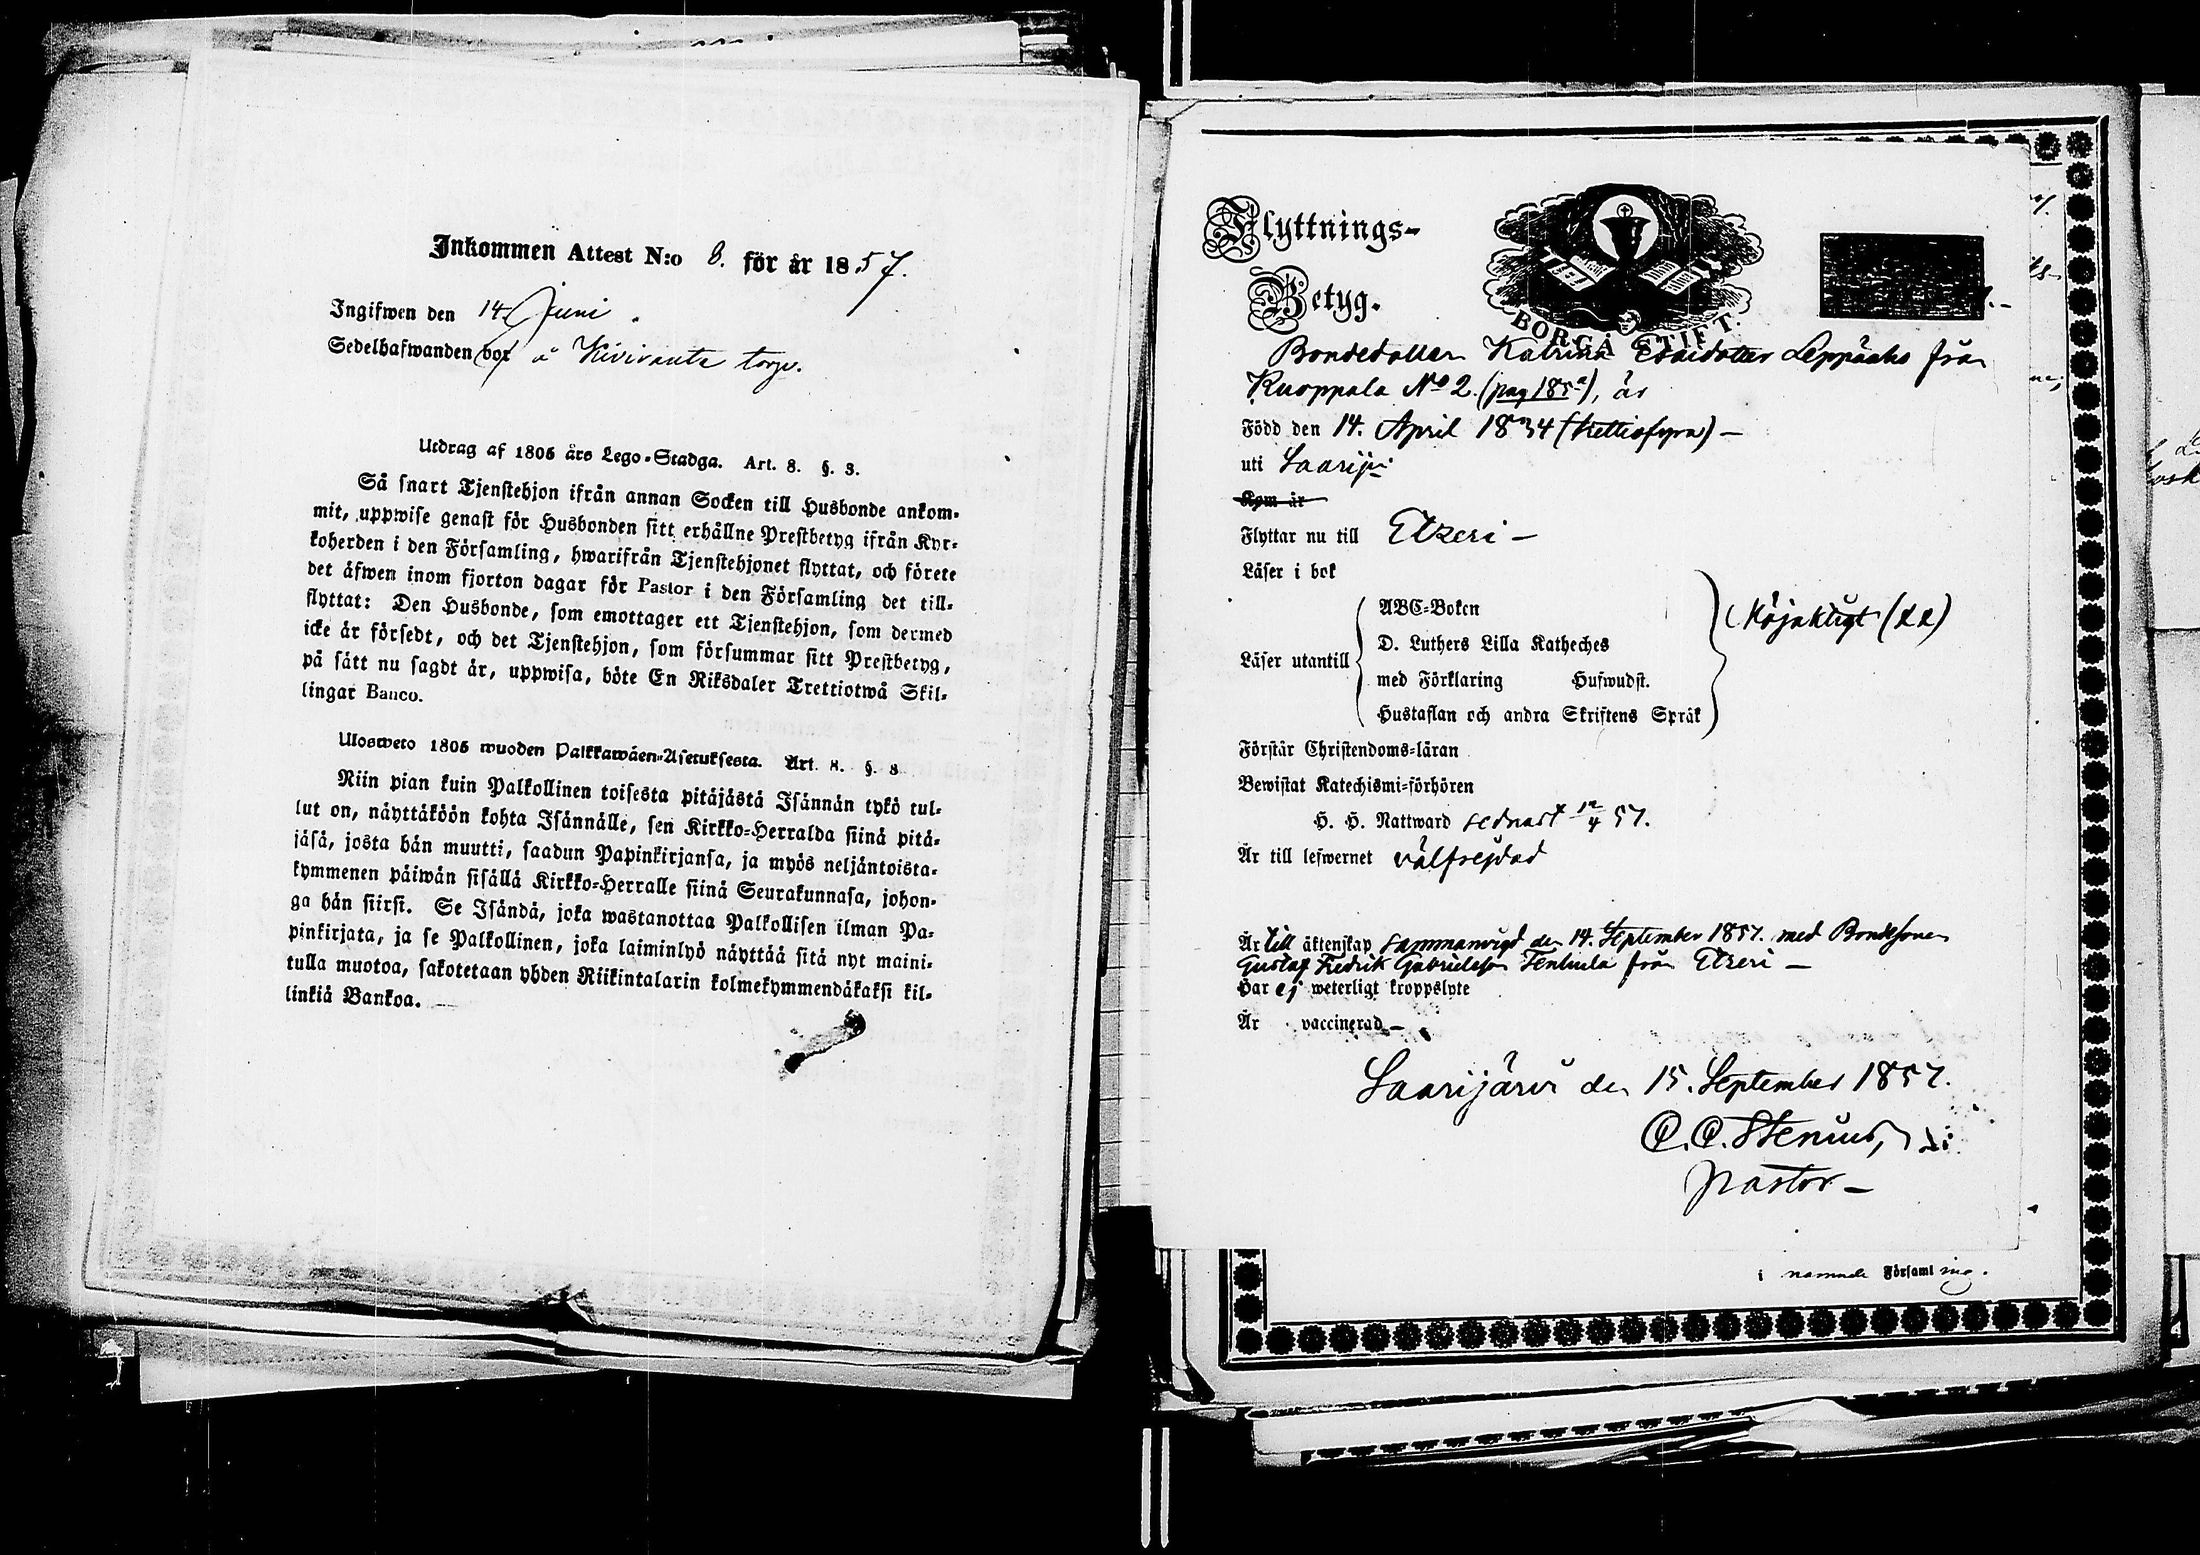 Inkommen Attest N:o 8. för år 1857.
Ingifwen den 14 Juni.
Sedelhafwanden bor å Kiviranta torp.
Utdrag af 1805 års Lego-Stadga. Art. 8. §. 3.
Så snart Tjenstehjon ifrån annan Socken till Husbonde ankom-
mit, uppwise genast för Husbonden sitt erhållne Prestbetyg ifrån Kyr-
koherden i den Församling, hwarifrån Tjenstehjonet flyttat, och förete
det äfwen inom fjorton dagar för Pastor i den Församling det till-
flyttat: Den Husbonde, som emottager ett Tjenstehjon, som dermed
icke är försedt, och det Tjenstehjon, som försummar sitt Prestbetyg,
på sätt nu sagdt är, uppwisa, böte En Riksdaler Trettiotwå Skil-
lingar Banco.
Ulosweto 1805 wuoden Palkkawäen-Asetuksesta. Art. 8. §. 3
Niin pian kuin Palkollinen toisesta pitäjästä Isännän tykö tul-
lut on, näyttäköön kohta Isännälle, sen Kirkko-Herralda siinä pitä-
jäsä, josta hän muutti, saadun Papinkirjansa, ja myös neljäntoista-
kymmenen päiwän sisällä Kirkko-Herralle siinä Seurakunnasa, johon-
ga hän siirsi. Se Isändä, joka wastanottaa Palkollisen ilman Pa-
pinkirjata, ja se Palkollinen, joka laiminlyö näyttää sitä nyt maini-
tulla muotoa, sakotetaan yhden Riikintalarin kolmekymmendäkaksi kil-
linkiä Bankoa.
Flyttnings-
Betyg.
BORGÅ STIFT.
Bondedottern Katrina Esaidotter Leppäaho från
Kuoppala No 2. (pag 185a), är
Född den 14. April 1834 (trettiofyra) –
uti Saarijvi
Kom år
Flyttar nu till Etzeri –
Läser i bok
ABC-Boken
Läser utantill D. Luthers Lilla Katheches
med Förklaring Hufwudst.
Hustaflan och andra Skriftens Språk
Nöjaktigt
Förstår Christendoms-läran
Bewistat Katechismi-förhören
H. H. Nattward sednast 12/4 57.
Är till lefwernet välfrejdad
Är till äktenskap sammanvigd den 14. September 1857. med Bondesonen
Gustaf Fredrik Gabrielsson Tenhula från Etzeri –
Har ej weterligt kroppslyte
Är vaccinerad –
Saarijärvi den 15. September 1857.
C. C. Stenius,
Pastor –
i nämnde Församling.